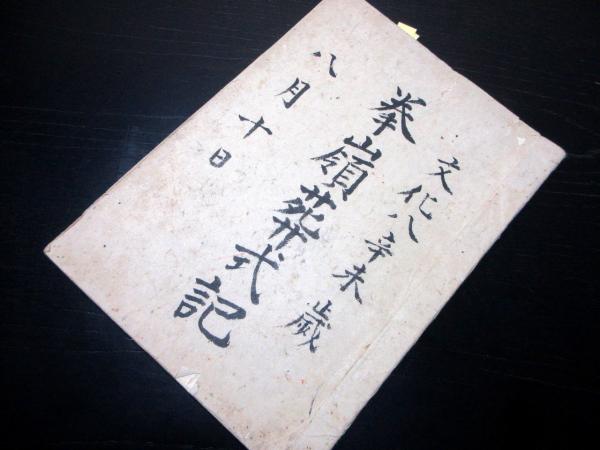 文化八辛未歳
拳嶺葬式記
八月十日